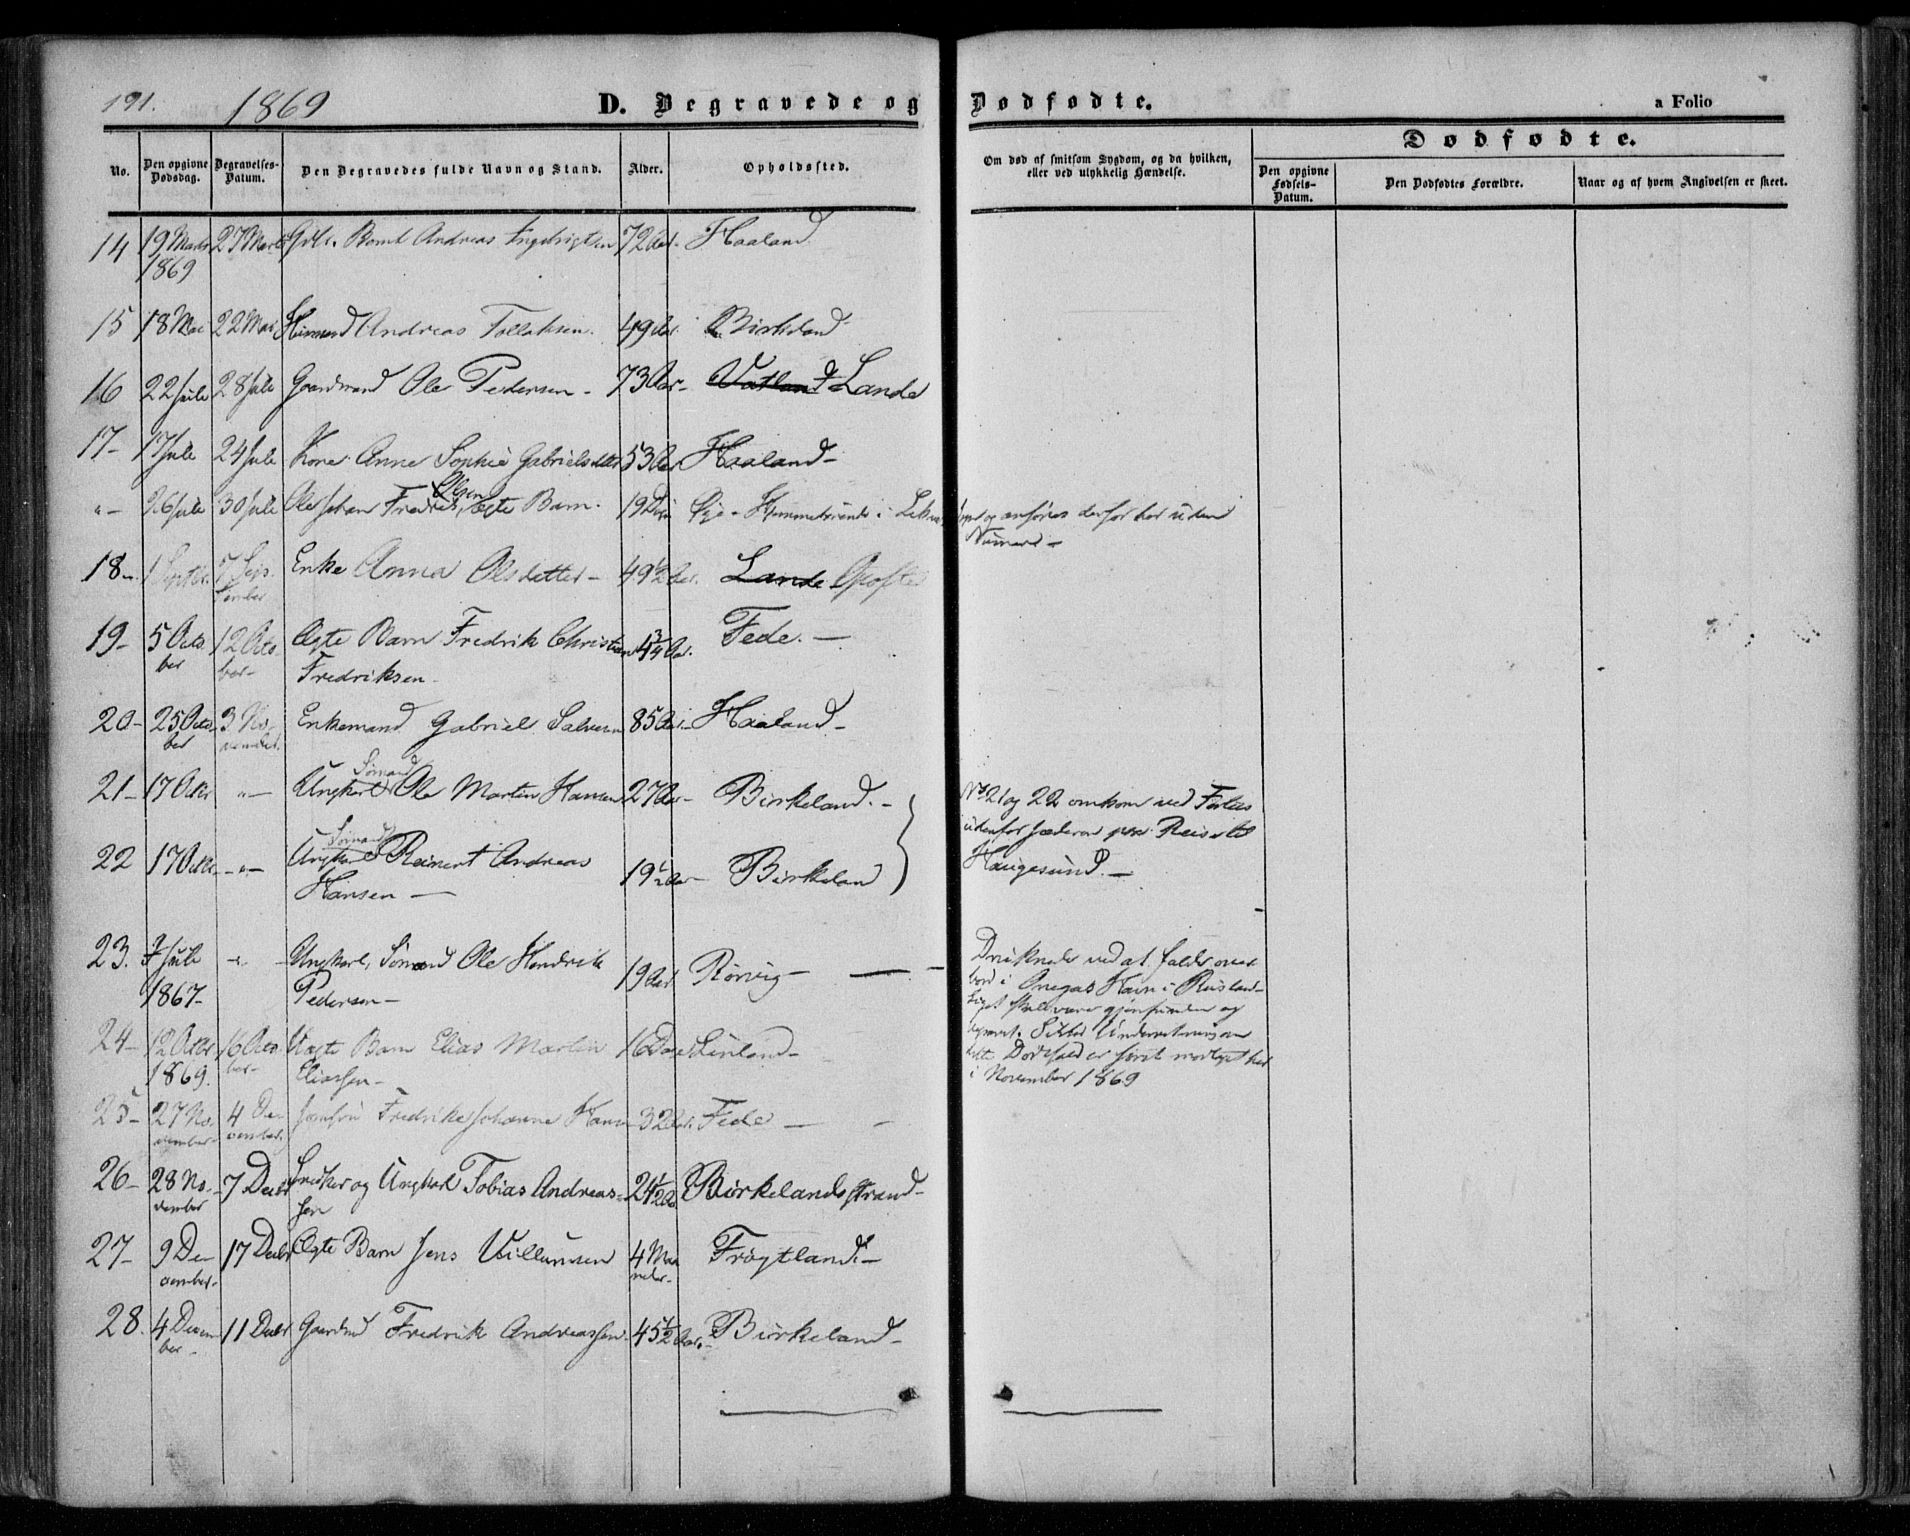 191. 1869 D. Begravede og Dødfødte. a Folio
No.
Den opgivne Dødsdag.
Begravelses-Datum.
Den Begravedes fulde Navn og Stand.
Alder.
Opholdssted.
Om død af smitsom Sygdom, og da hvilken, eller ved ulykkelig Hændelse.
Dødfødte.
Den opgivne Fødsels-Datum.
Den Dødfødtes Forældre.
Naar og af hvem Angivelsen er skeet.
14 19 Marts 27 Marts Andreas Ingebrigtsen 72 Aar. Haaland
1869
15 18 Mai 22 Mai Huusmand Andreas Tollaksen. 49 Aar. Birkeland
16 22 Juli 28 Juli Gaardmand Ole Pedersen - 73 Aar - Vatland Lande
17- 17 Juli 24 Juli Kone Anne Sophie Gabrielsdatter 53 Aar Haaland-
Olsen
" - 26 Juli 30 Juli Ole Johan Fredrik, Ægte Barn. 19 Dage Øye - i og anføres derfor her uden
Numer -
18- 1 Septbr. 7 Sep- Enke Anna Olsdatter - 49½ Aar. Lande
tember
19- 5 Octo- 12 Octo- Ægte Barn Fredrik Christian 4¾ Aar. Fede. -
ber ber- Fredriksen-
20- 25 Octo- 3 No- Enkemand Gabriel Salvesen 85 Aar- Haaland-
ber vember.
Sømand
21- 17 Octbr " - Ungkarl Ole Martin Hansen 27 Aar- Birkeland. -
No 21 og 22 omkom ved Forliis
udenfor Jæderen paa Reise til
Haugesund. -
Sømand
22 17 Octbr. - " - Ungkarl Reinert Andreas 19½ Aar- Birkeland
Hansen -
23. 7 Juli - " - Ungkarl, Sømand Ole Hendrik 19 Aar Rørvig-
1867- Pedersen-
Druknede ved at falde over
bord i Onegas Havn i Rusland-
Liget skal være gjenfunden og
begravet. Sikker Underretning om
dette Dødsfald er først modtaget her
i November 1869
24- 12 Octbr 16 Octo- Uægte Barn Elias Martin 16 Dage
1869. ber- Eliassen-
25- 27 No- 4 De- Jomfru Fredrikke Johanne Hansen 32 Aar. Fede -
vember- cember.
26- 28 No- 7 Decbr Snedker og Ungkarl Tobias Andreas- 24½ Aar Birkelandsstrand-
vember sen
27- 9 De- 17 Decbr Ægte Barn Jens Villumsen 4 Maa- Frøytland-
cember- neder-
28. 4 Decem- 11 Decbr Gaardmd Fredrik Andreassen- 45½ Aar. Birkeland-
ber -